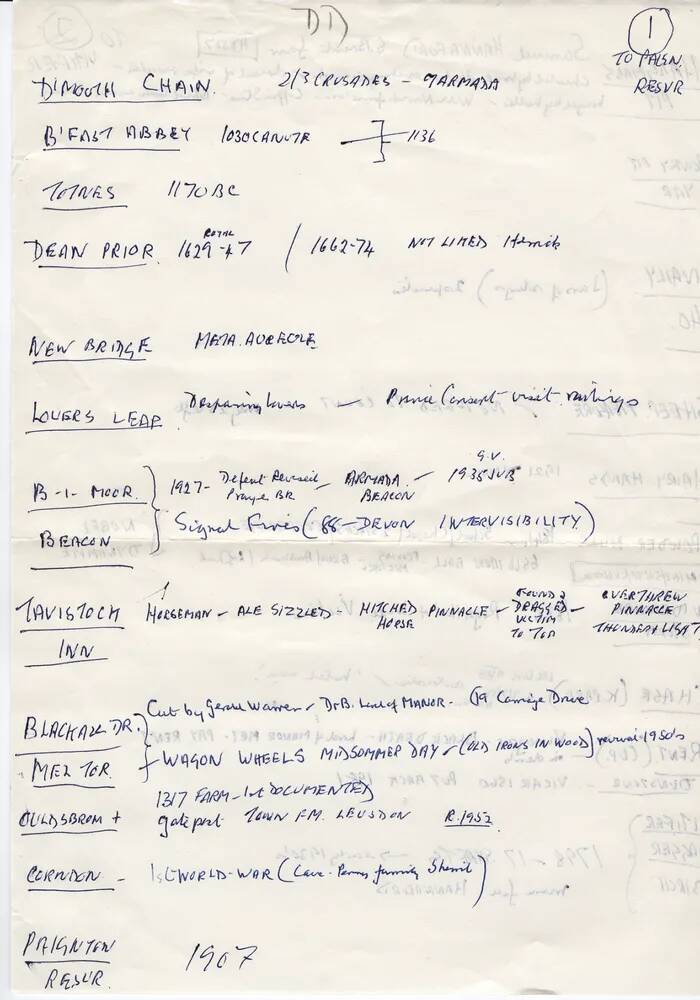 D1)
1
TO PAIGN.
RESVR
D'MOUTH CHAIN. 2/3 CRUSADES - ARMADA
B'FAST ABBEY 1030 CANUTE 1136
TOTNES 1170 BC
DEAN PRIOR ROYAL 1629-47 / 1662-74 NOT LIKED Herrick
NEW BRIDGE META. AUREOLE
LOVERS LEAP Despairing lovers — Prince Consort visit. railings
B-I-MOOR. 1927- Defeat Revised Prayer BK - ARMADA BEACON - G.V. 1935 JUB
BEACON Signal Fires (88-DEVON INTERVISIBILITY)
TAVISTOCK INN HORSEMAN - ALE SIZZLED - HITCHED HORSE PINNACLE - FOUND & DRAGGED VICTIM TO TOP - OVERTHREW PINNACLE THUNDER + LIGHT
BLACKALL DR. Cut by Gerald Warren / Dr B. Lord of MANOR. Carriage Drive
MEL TOR. WAGON WHEELS MIDSOMMER DAY - (OLD IRONS IN WOOD) revived 1950s
1317 FARM - 1st DOCUMENTED
OULDSBROM + gatepost TOWN FM. LEUSDON R.1952
CORNDON - 1st WORLD-WAR (Cave - family Sherril)
PAIGNTON
RESVR. 1907